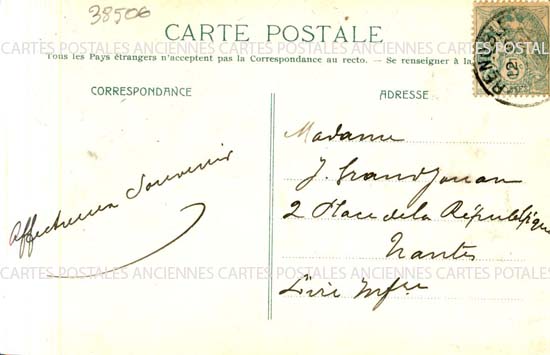 38506
CARTE POSTALE
Tous les Pays étrangers n'acceptent pas la Correspondance au recto. — Se renseigner à la
CORRESPONDANCE
ADRESSE
Affectueux Souvenir
Madame
J. Grandjouan
2 Place de la République
Nantes
Loire Infre
CARTES POSTALES ANCIENNES CARTES POSTALES ANCIENNES CARTES POSTALES
CARTES POSTALES ANCIENNES CARTES POTALES ANCIENNES CARTES POSTALES
12